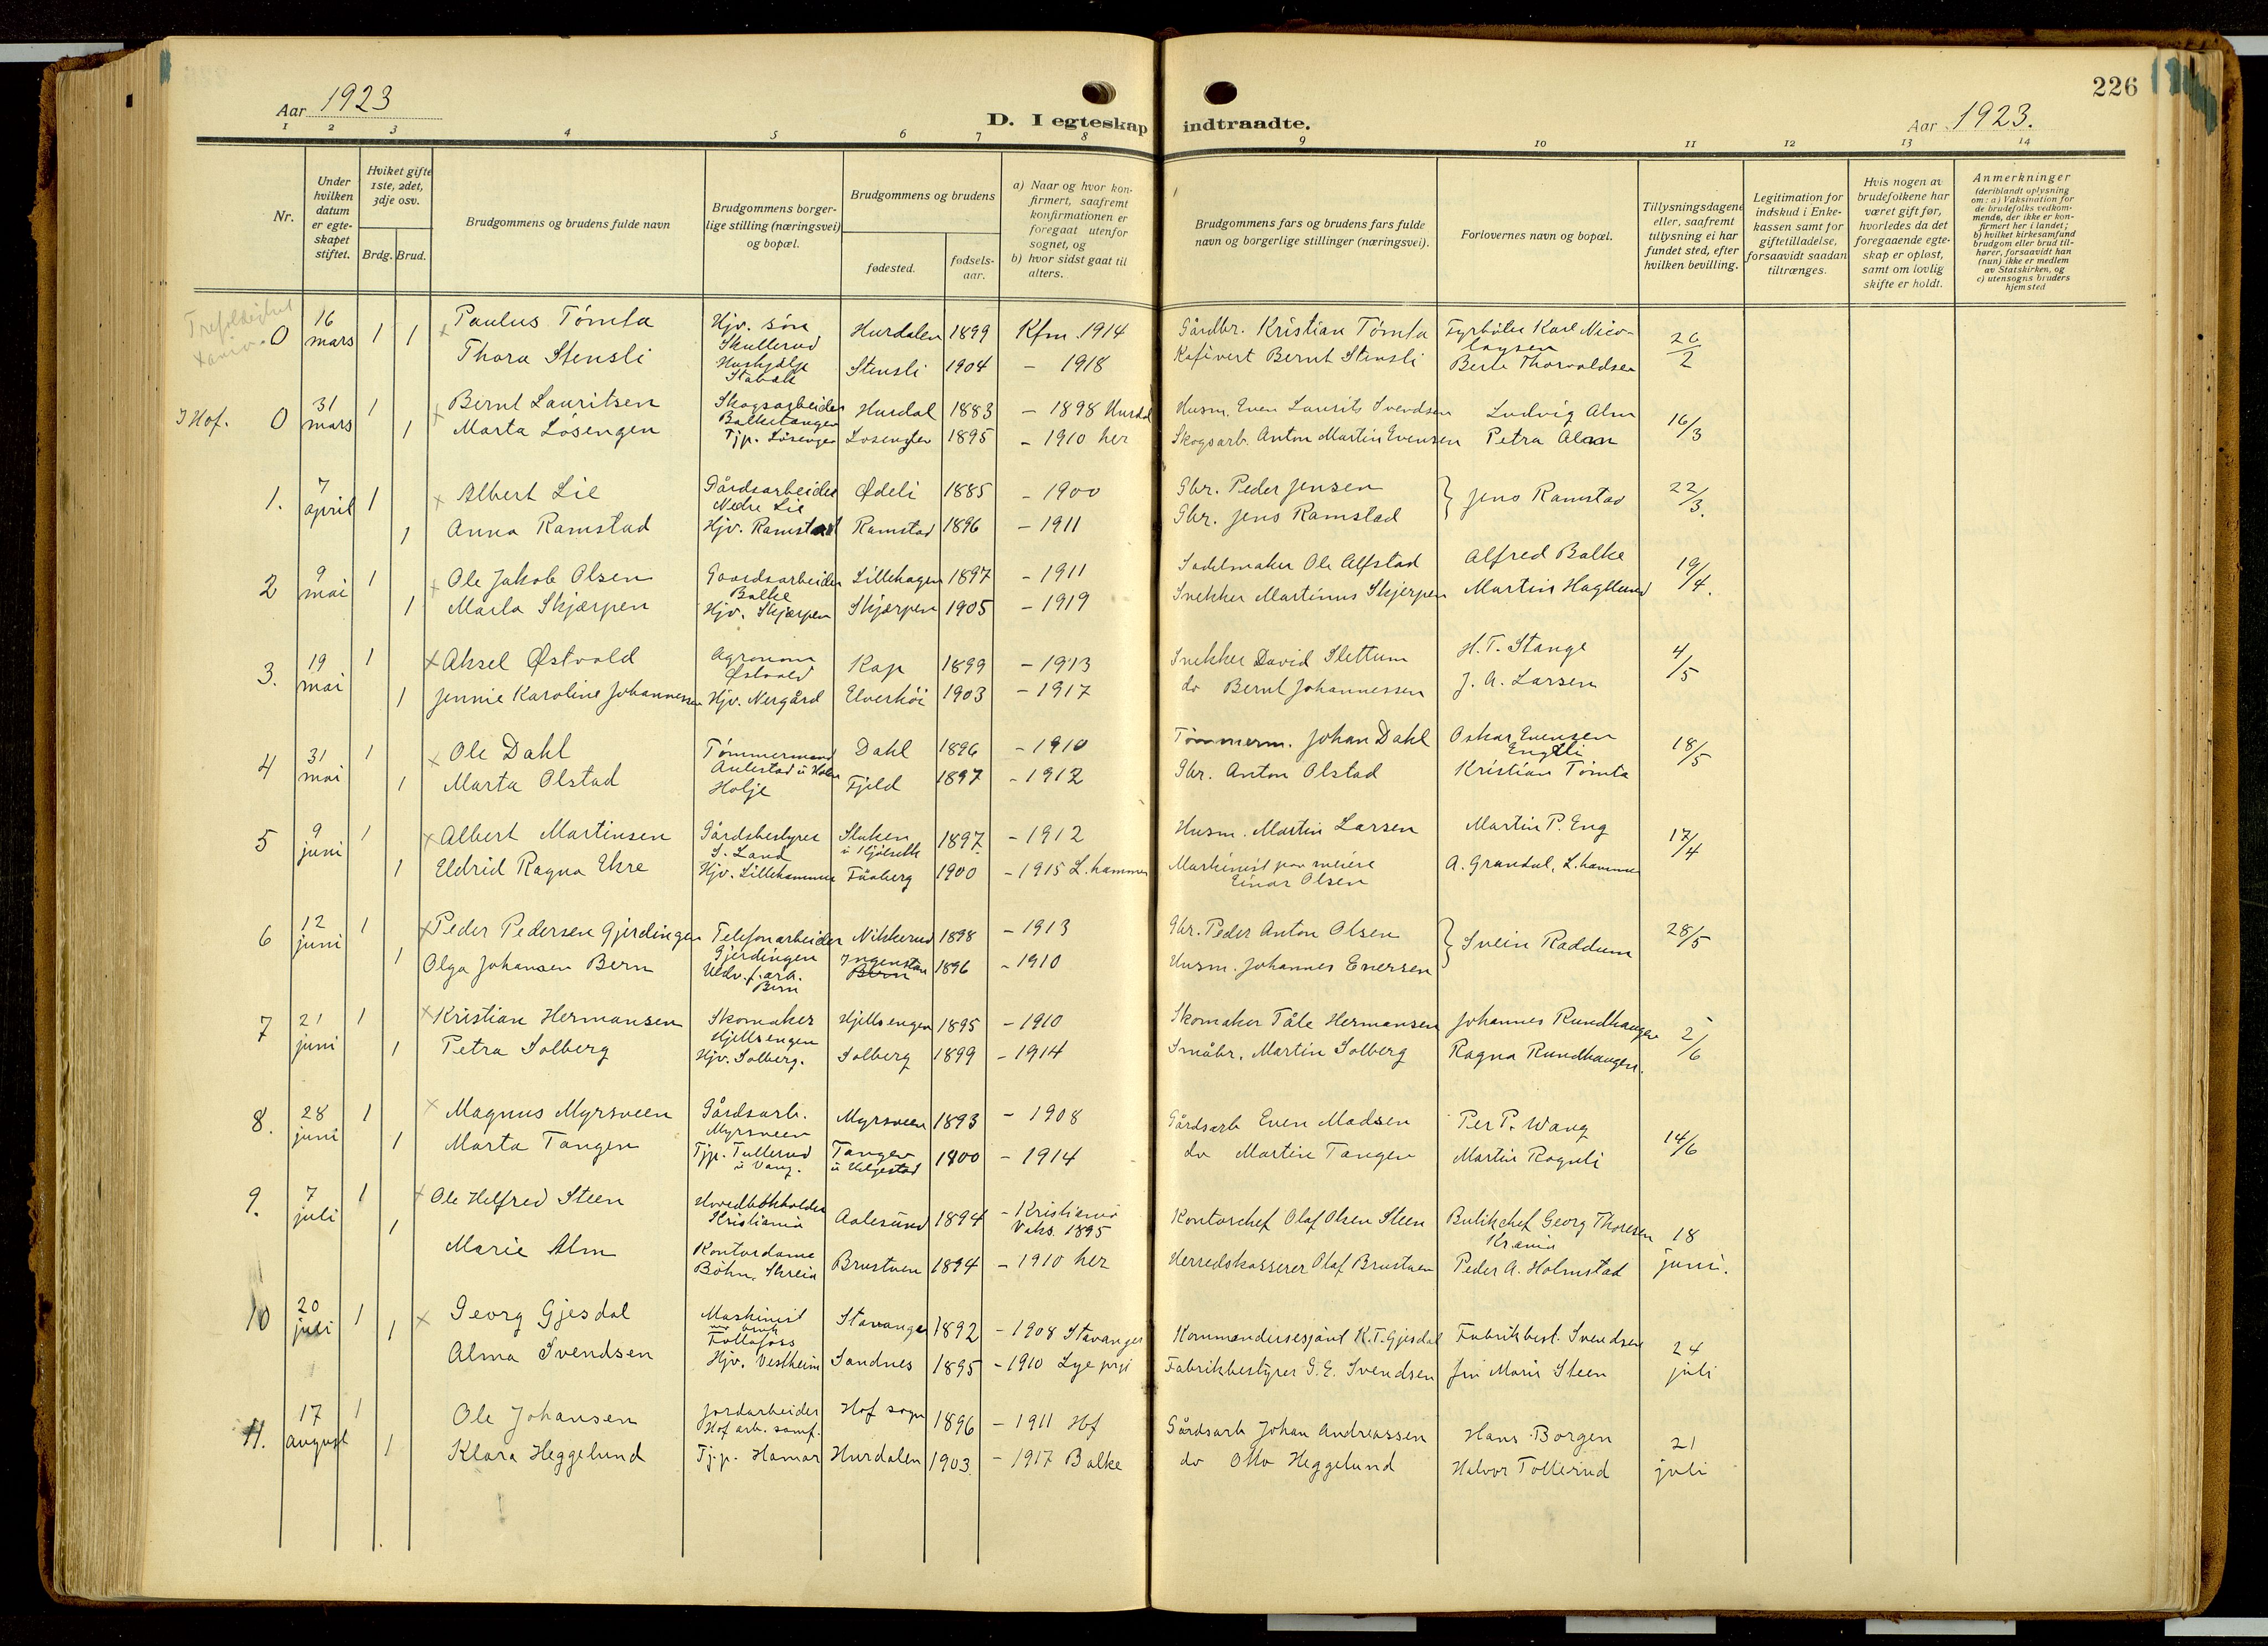 Aar 1923
D. I egteskap
indtraadte.
226
Aar 1923.
1 2 3 4 5 6 7 8 9 10 11 12 13 14
Nr.
Under
hvilken
datum
er egte-
skapet
stiftet.
Hviket gifte
1ste, 2det,
3dje osv.
Brdg. Brud.
Brudgommens og brudens fulde navn
Brudgommens borger-
lige stilling (næringsvei)
og bopæl.
Brudgommens og brudens
fødested.
fødsels-
aar.
a) Naar og hvor kon-
firmert, saafremt
konfirmationen er
foregaat utenfor
sognet, og
b) hvor sidst gaat til
alters.
Brudgommens fars og brudens fars fulde
navn og borgerlige stillinger (næringsvei).
Forlovernes navn og bopæl.
Tillysningsdagene
eller, saafremt
tillysning ei har
fundet sted, efter
hvilken bevilling.
Legitimation for
indskud i Enke-
kassen samt for
giftetilladelse,
forsaavidt saadan
tiltrænges.
Hvis nogen av
brudefolkene har
været gift før,
hvorledes da det
foregaaende egte-
skap er opløst,
samt om lovlig
skifte er holdt.
Anmerkninger
(deriblandt oplysning
om: a) Vaksination for
de brudefolks vedkom-
mende, der ikke er kon-
firmert her i landet;
b) hvilket kirkesamfund
brudgom eller brud til-
hører, forsaavidt han
(hun) ikke er medlem
av Statskirken, og
c) utensogns bruders
hjemsted
0 16 mars 1 1 Paulus Tömta Hjv. sön Skullerud Hurdalen 1899 Kfm. 1914 Gårdbr. Kristian Tömta Fyrböter Karl Nico-laysen 26/2
Thora Stensli Hushjelp Stabæk Stensli 1904 - 1918 Kafévert Bernt Stensli Berte Thorvaldsen
I Hof. 0 31 mars 1 Bernt Lauritsen Skogsarbeider Balketangen Hurdal 1883 - 1898 Hurdal Husm. Even Laurits Svendsen Ludvig Alm 16/3
1 Marta Lösengen Tjp. Lösengen Lösengen 1895 - 1910 her Skogsarb. Anton Martin Evensen Petra Alm
1. 7 april 1 Albert Lie Gårdsarbeider Nedre Lie Ødeli 1885 - 1900 Gbr. Peder Jensen } Jens Ramstad 22/3.
1 Anna Ramstad Hjv. Ramstad Ramstad 1896 - 1911 Gbr. Jens Ramstad
2 9 mai 1 Ole Jakob Olsen Gaardsarbeider Balke Lillehagen 1897 - 1911 Sadelmaker Ole Alfstad Alfred Balke 19/4.
1 Marta Skjærpen Hjv. Skjærpen Skjærpen 1905 - 1919 Snekker Martinus Skjerpen Martin Haglund
3. 19 mai 1 Aksel Østvold Agronom Østvold Kap 1899 - 1913 Snekker David Slettum H. T. Stange 4/5
1 Jennie Karoline Johannessen Hjv. Nergård Elverhöi 1903 - 1917 do Bernt Johannessen J. A. Larsen
4 31 mai 1 Ole Dahl Tömmermand Dahl 1896 - 1910 Tömmerm. Johan Dahl Oskar Evensen Engeli 18/5
1 Marta Olstad Holje Fjeld 1897 - 1912 Gbr. Anton Olstad Kristian Tömta
5 9 juni 1 Albert Martinsen Gårdsbestyrer S. Land Sluken 1897. - 1912 Husm. Martin Larsen Martin P. Eng 17/4
1 Eldrid Ragna Ekre Hjv. Lillehammer Fåberg 1900 - 1915 L.hammer Maskinist paa meieri Einar Olsen A. Grandal, L.hammer
6 12 juni 1 Peder Pedersen Gjerdingen Telefonarbeider Gjerdingen Nikkerud 1898 - 1913 Gbr. Peder Anton Olsen } Svein Raddum 28/5
1 Olga Johansen Bern Uldv.f.arb. Bern Ingenstan 1896 - 1910 Husm. Johannes Enersen
7 21 juni 1 Kristian Hermansen Skomaker Hjellsengen Hjellsengen 1895 - 1910 Skomaker Tåle Hermansen Johannes Rundhaugen 2/6
1 Petra Solberg Hjv. Solberg. Solberg 1899 - 1914 Småbr. Martin Solberg Ragna Rundhaugen.
8. 28 juni 1 Magnus Myrsveen Gårdsarb. Myrsveen Myrsveen 1893 - 1908 Gårdsarb Even Madsen Per P. Wang 14/6
1 Marta Tangen Tjp. Tullerud i Vang. Tangen u Helgestad 1900 - 1914 do Martin Tangen Martin Rognli
9. 7 juli 1 Ole Helfred Steen Hovedbokholder Kristiania Aalesund 1894 - Kristiania Vaks. 1895 Kontorchef Olaf Olsen Steen Butikchef Georg Thoresen Krania 18 juni.
1 Marie Alm Kontordame Böhn, Skreia Brustuen 1894 - 1910 her Herredskasserer Olaf Brustuen Peder A. Holmstad
10 20 juli 1 Georg Gjesdal Maskinist Follafoss Stavanger 1892 - 1908 Stavanger Kommandersesjant K. T. Gjesdal Fabrikbest. Svendsen 24 juli
1 Alma Svendsen Hjv. Vestheim Sandnes 1895 - 1910 Lye prgj Fabrikbestyrer G. E. Svendsen fru Marie Steen
11. 17 august 1 Ole Johansen Jordarbeider Hof arb. samf. Hof sogn 1896 - 1911 Hof Gårdsarb Johan Andreassen Hans Borgen 21 juli
1 Klara Heggelund Tj.p. Hamar Hurdalen 1903. - 1917 Balke do Otto Heggelund Halvor Tollerud